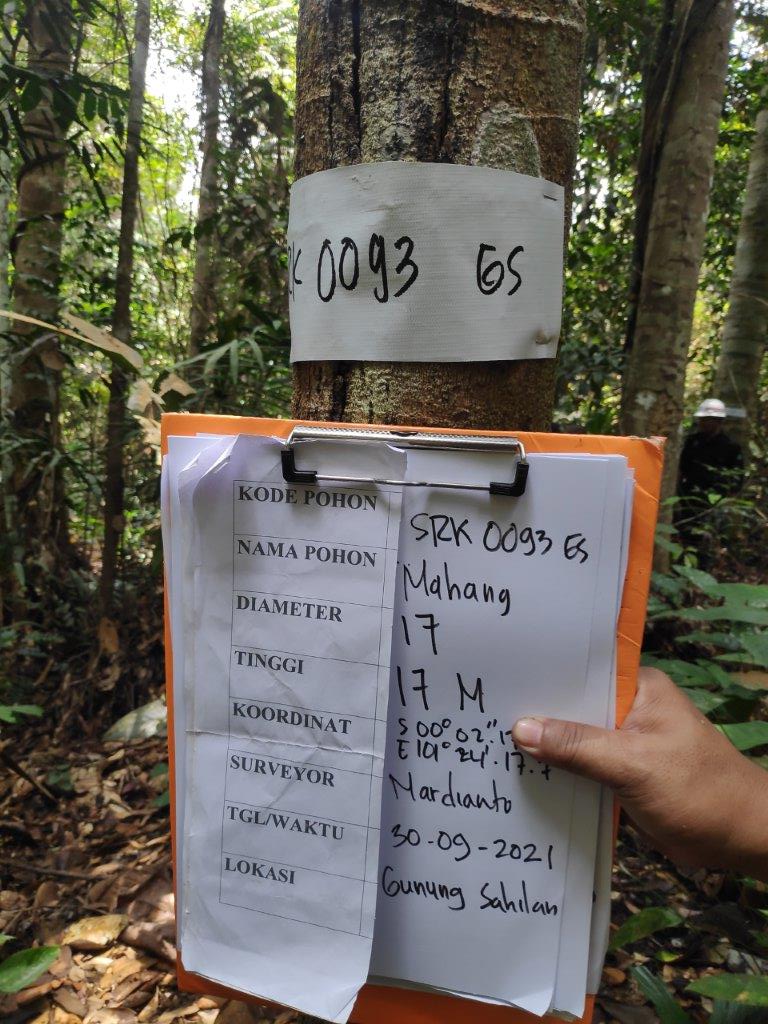 0093 ES
KODE POHON SRK 0093 ES
NAMA POHON Mahang
DIAMETER 17
TINGGI 17 M
KOORDINAT S 00° 02".
E 101° 24'. 17.
SURVEYOR Mardianto
TGL/WAKTU 30-09-2021
LOKASI Gunung Sahilan